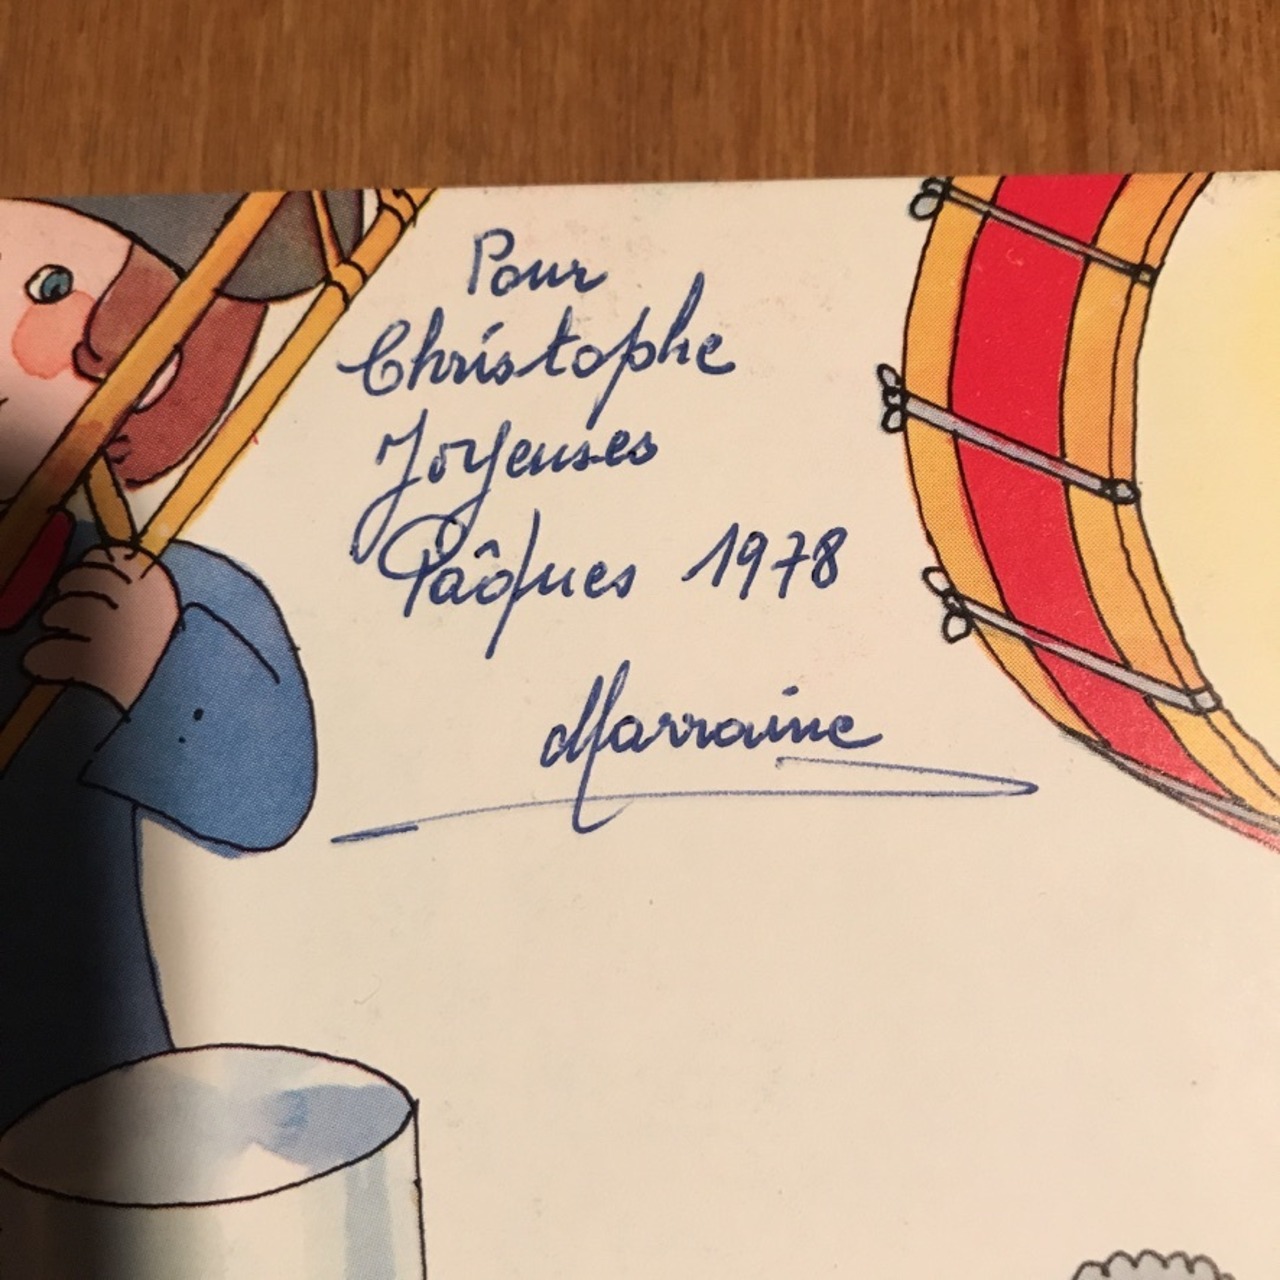 Pour
Christophe
Joyeuses
Pâques 1978
Marraine